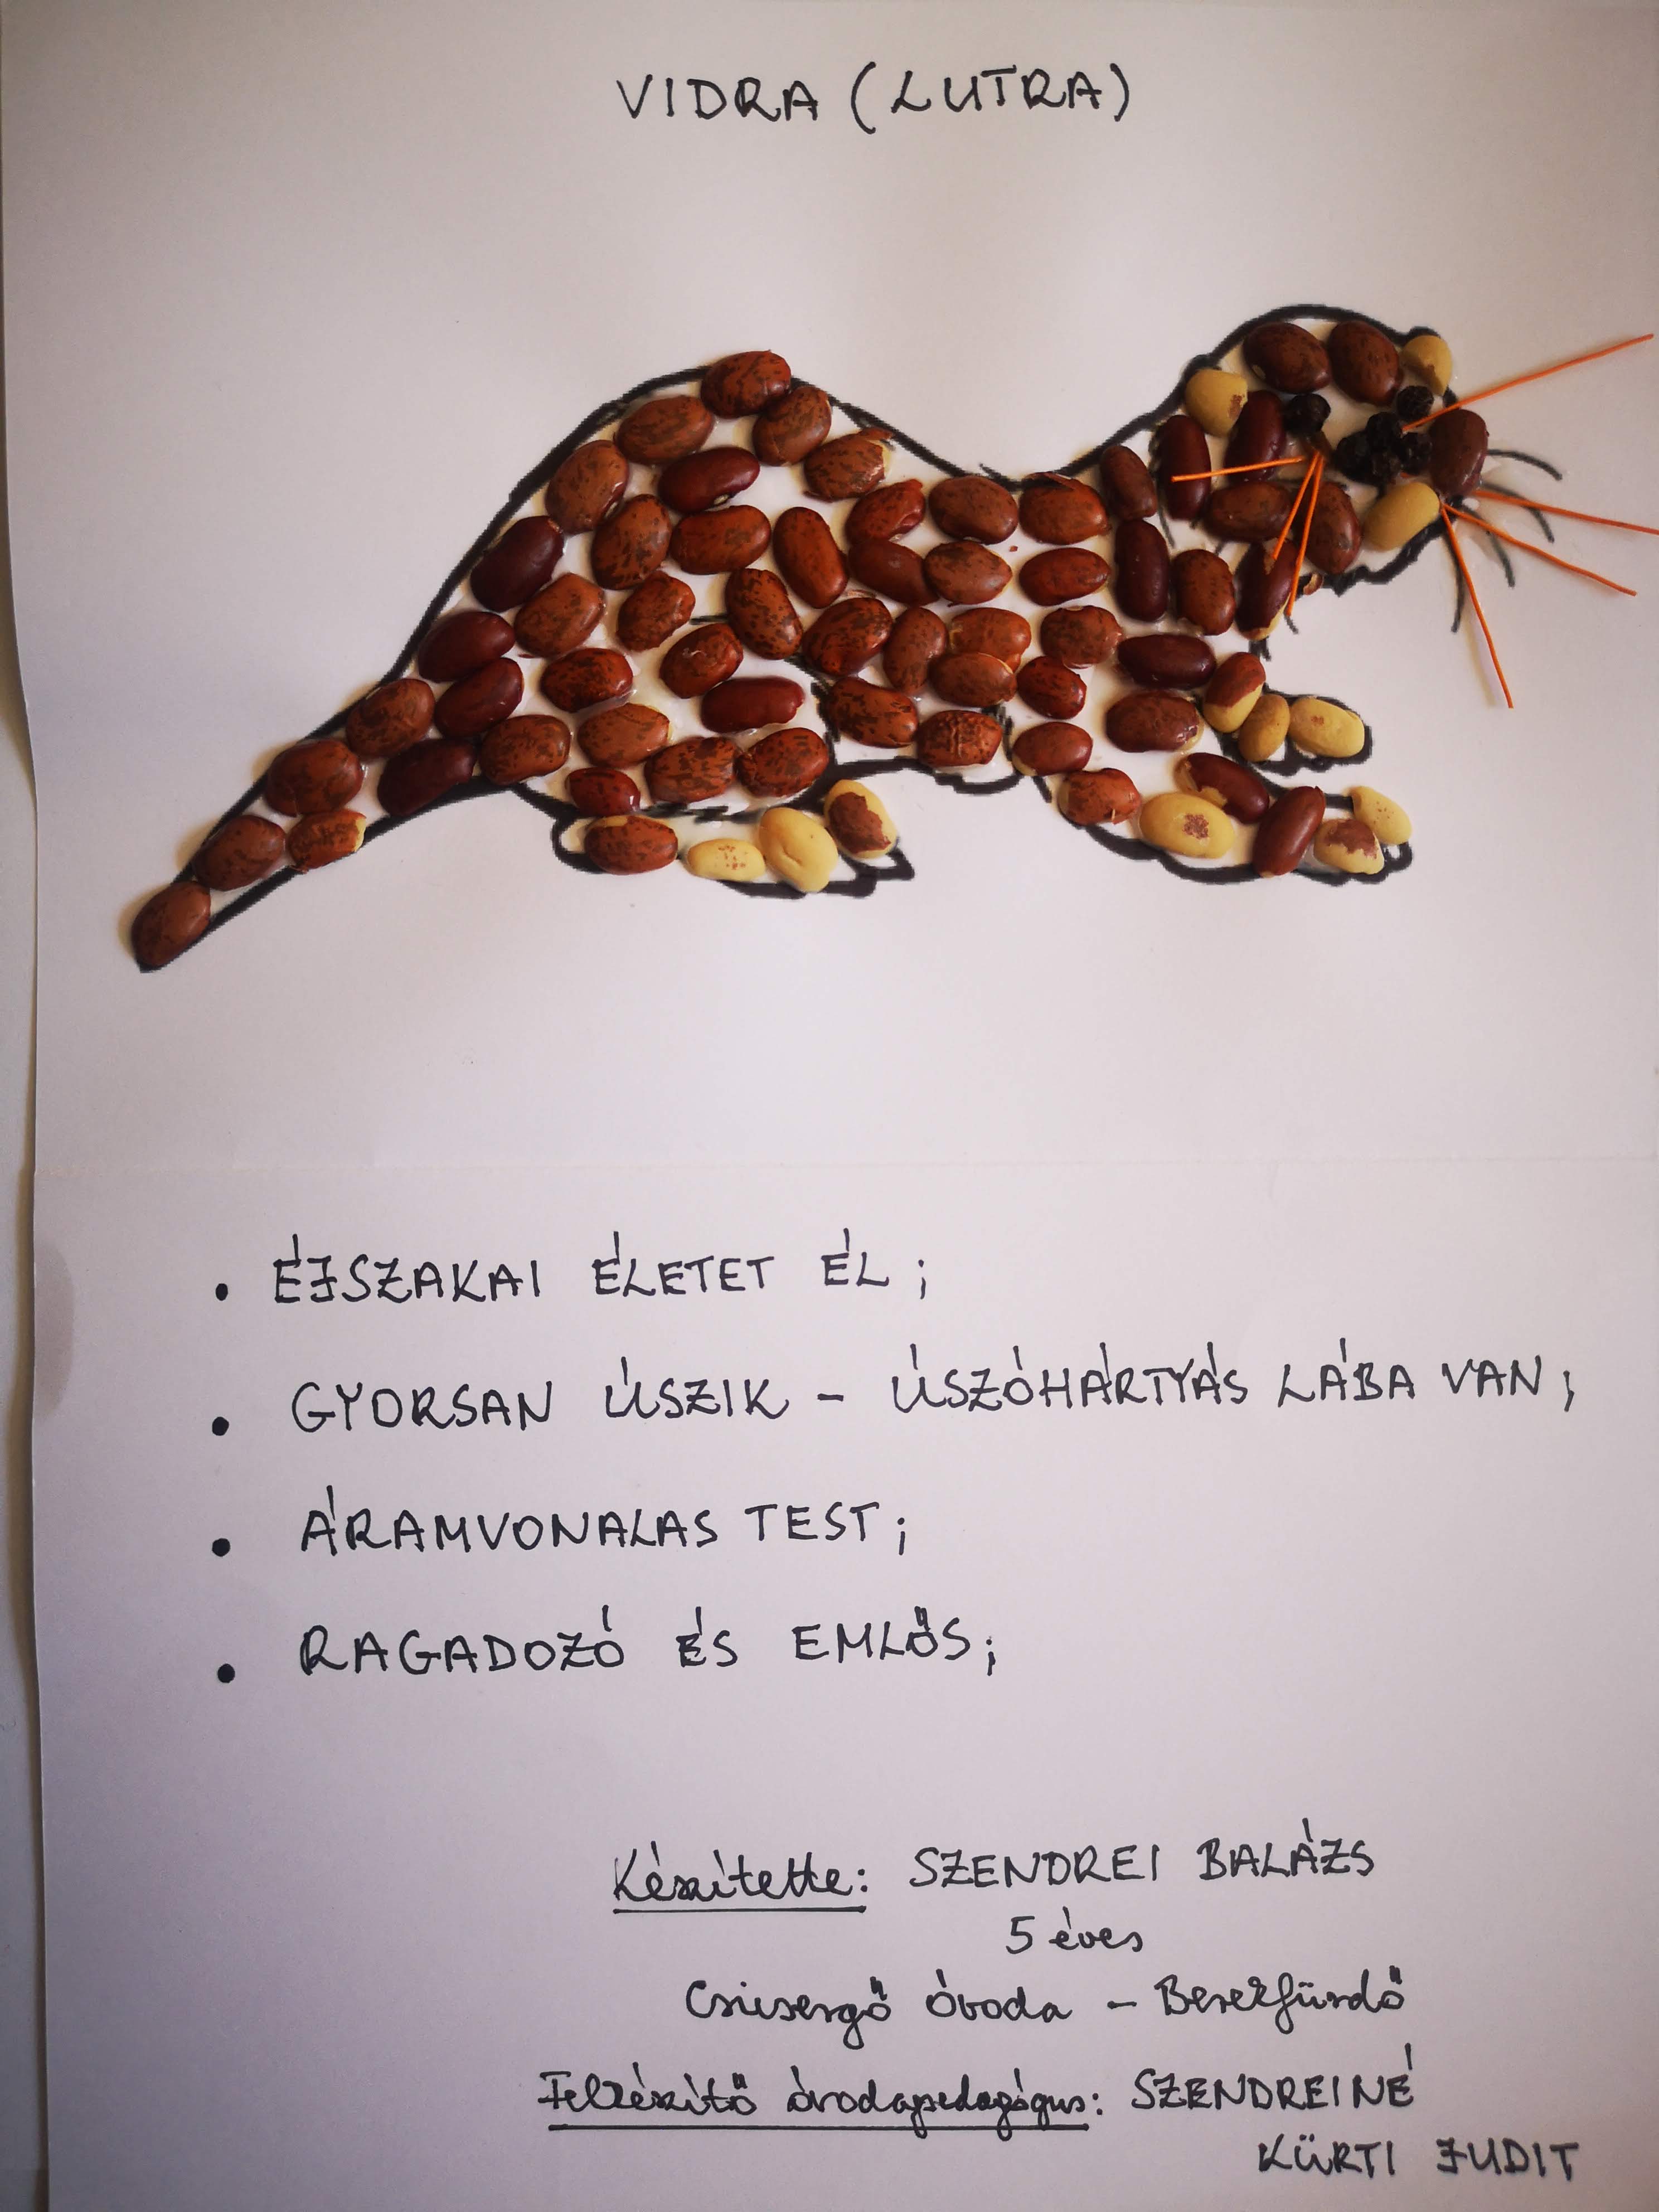 VIDRA (LUTRA)
• ÉJSZAKAI ÉLETET ÉL;
• GYORSAN ÚSZIK - ÚSZÓHÁRTYÁS LÁBA VAN;
• ÁRAMVONALAS TEST;
• RAGADOZÓ ÉS EMLŐS;
Készítette: SZENDREI BALÁZS
5 éves
Csicsergő óvoda - Berekfürdő
Felkészítő óvodapedagógus: SZENDREINÉ
KÜRTI JUDIT